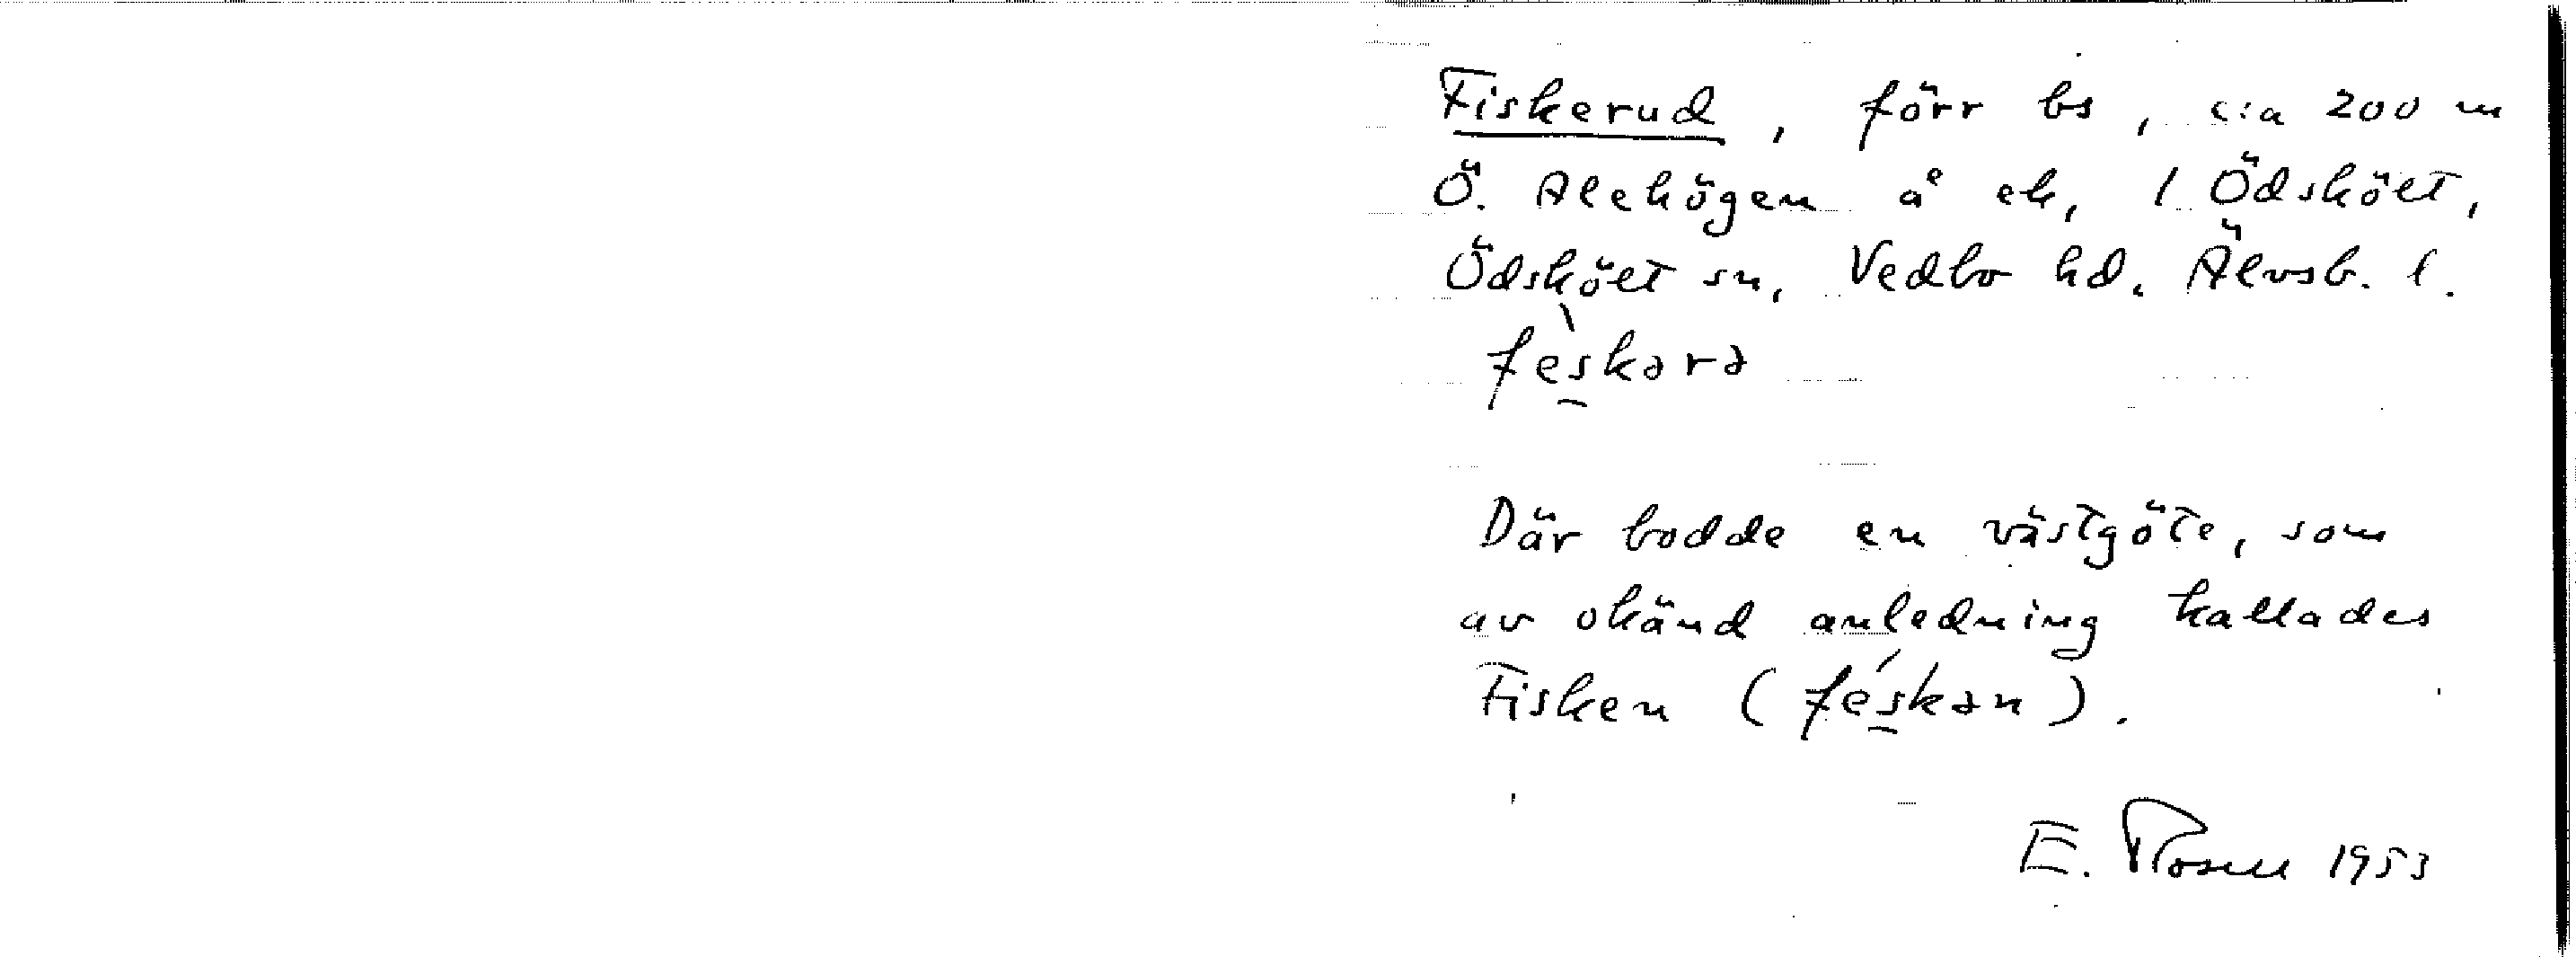 Fiskerud, förr bs, c:a 200 m
Ö. Alehögen å ek, 1 Ödskölt,
Ödskölt sn, Vedbo hd. Älvsb. l.
fe̠skərə
Där bodde en västgöte, som
av okänd anledning kallades
Fisken (fe̠skən).
E. Rosell 1953